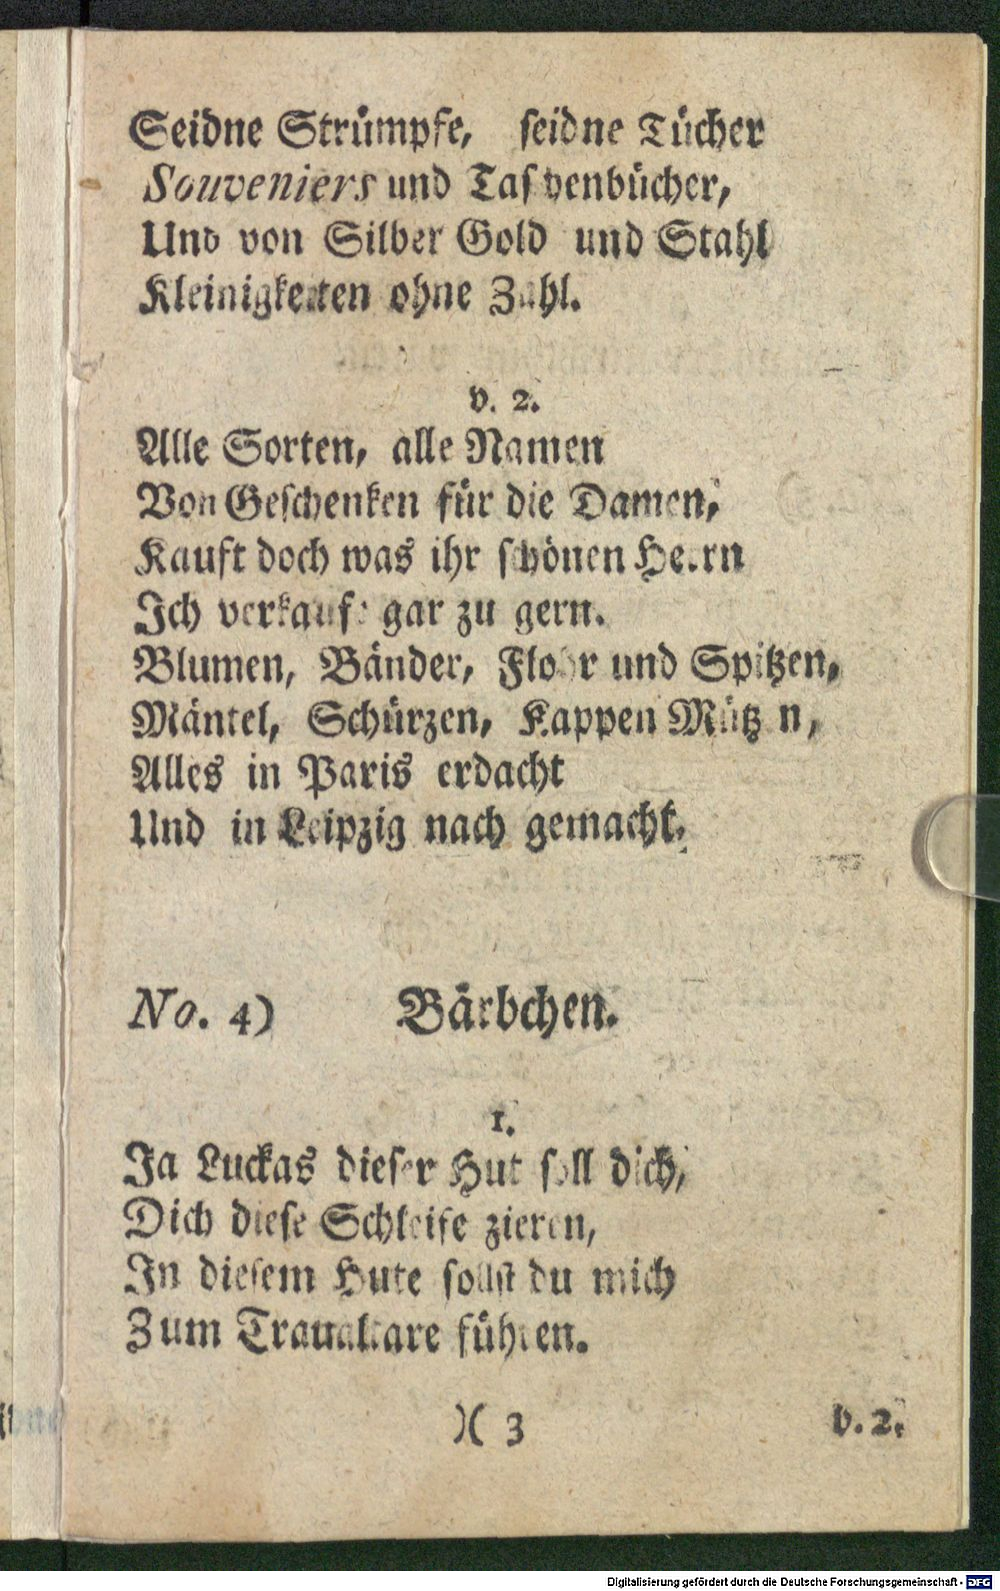 Seidne Strümpfe, seidne Tücher
Souveniers und Taschenbücher,
Und von Silber Gold und Stahl
Kleinigkeiten ohne Zahl.
v. 2.
Alle Sorten, alle Namen
Von Geschenken für die Damen,
Kauft doch was ihr schönen Herrn
Ich verkaufe gar zu gern.
Blumen, Bänder, Flohr und Spitzen,
Mäntel, Schürzen, Kappen Mützen,
Alles in Paris erdacht
Und in Leipzig nach gemacht.
No. 4) Bärbchen.
1.
Ja Luckas dieser Hut soll dich,
Dich diese Schleife zieren,
In diesem Hute sollst du mich
Zum Traualtare führen.
)( 3 v. 2.
Digitalisierung gefördert durch die Deutsche Forschungsgemeinschaft - DFG